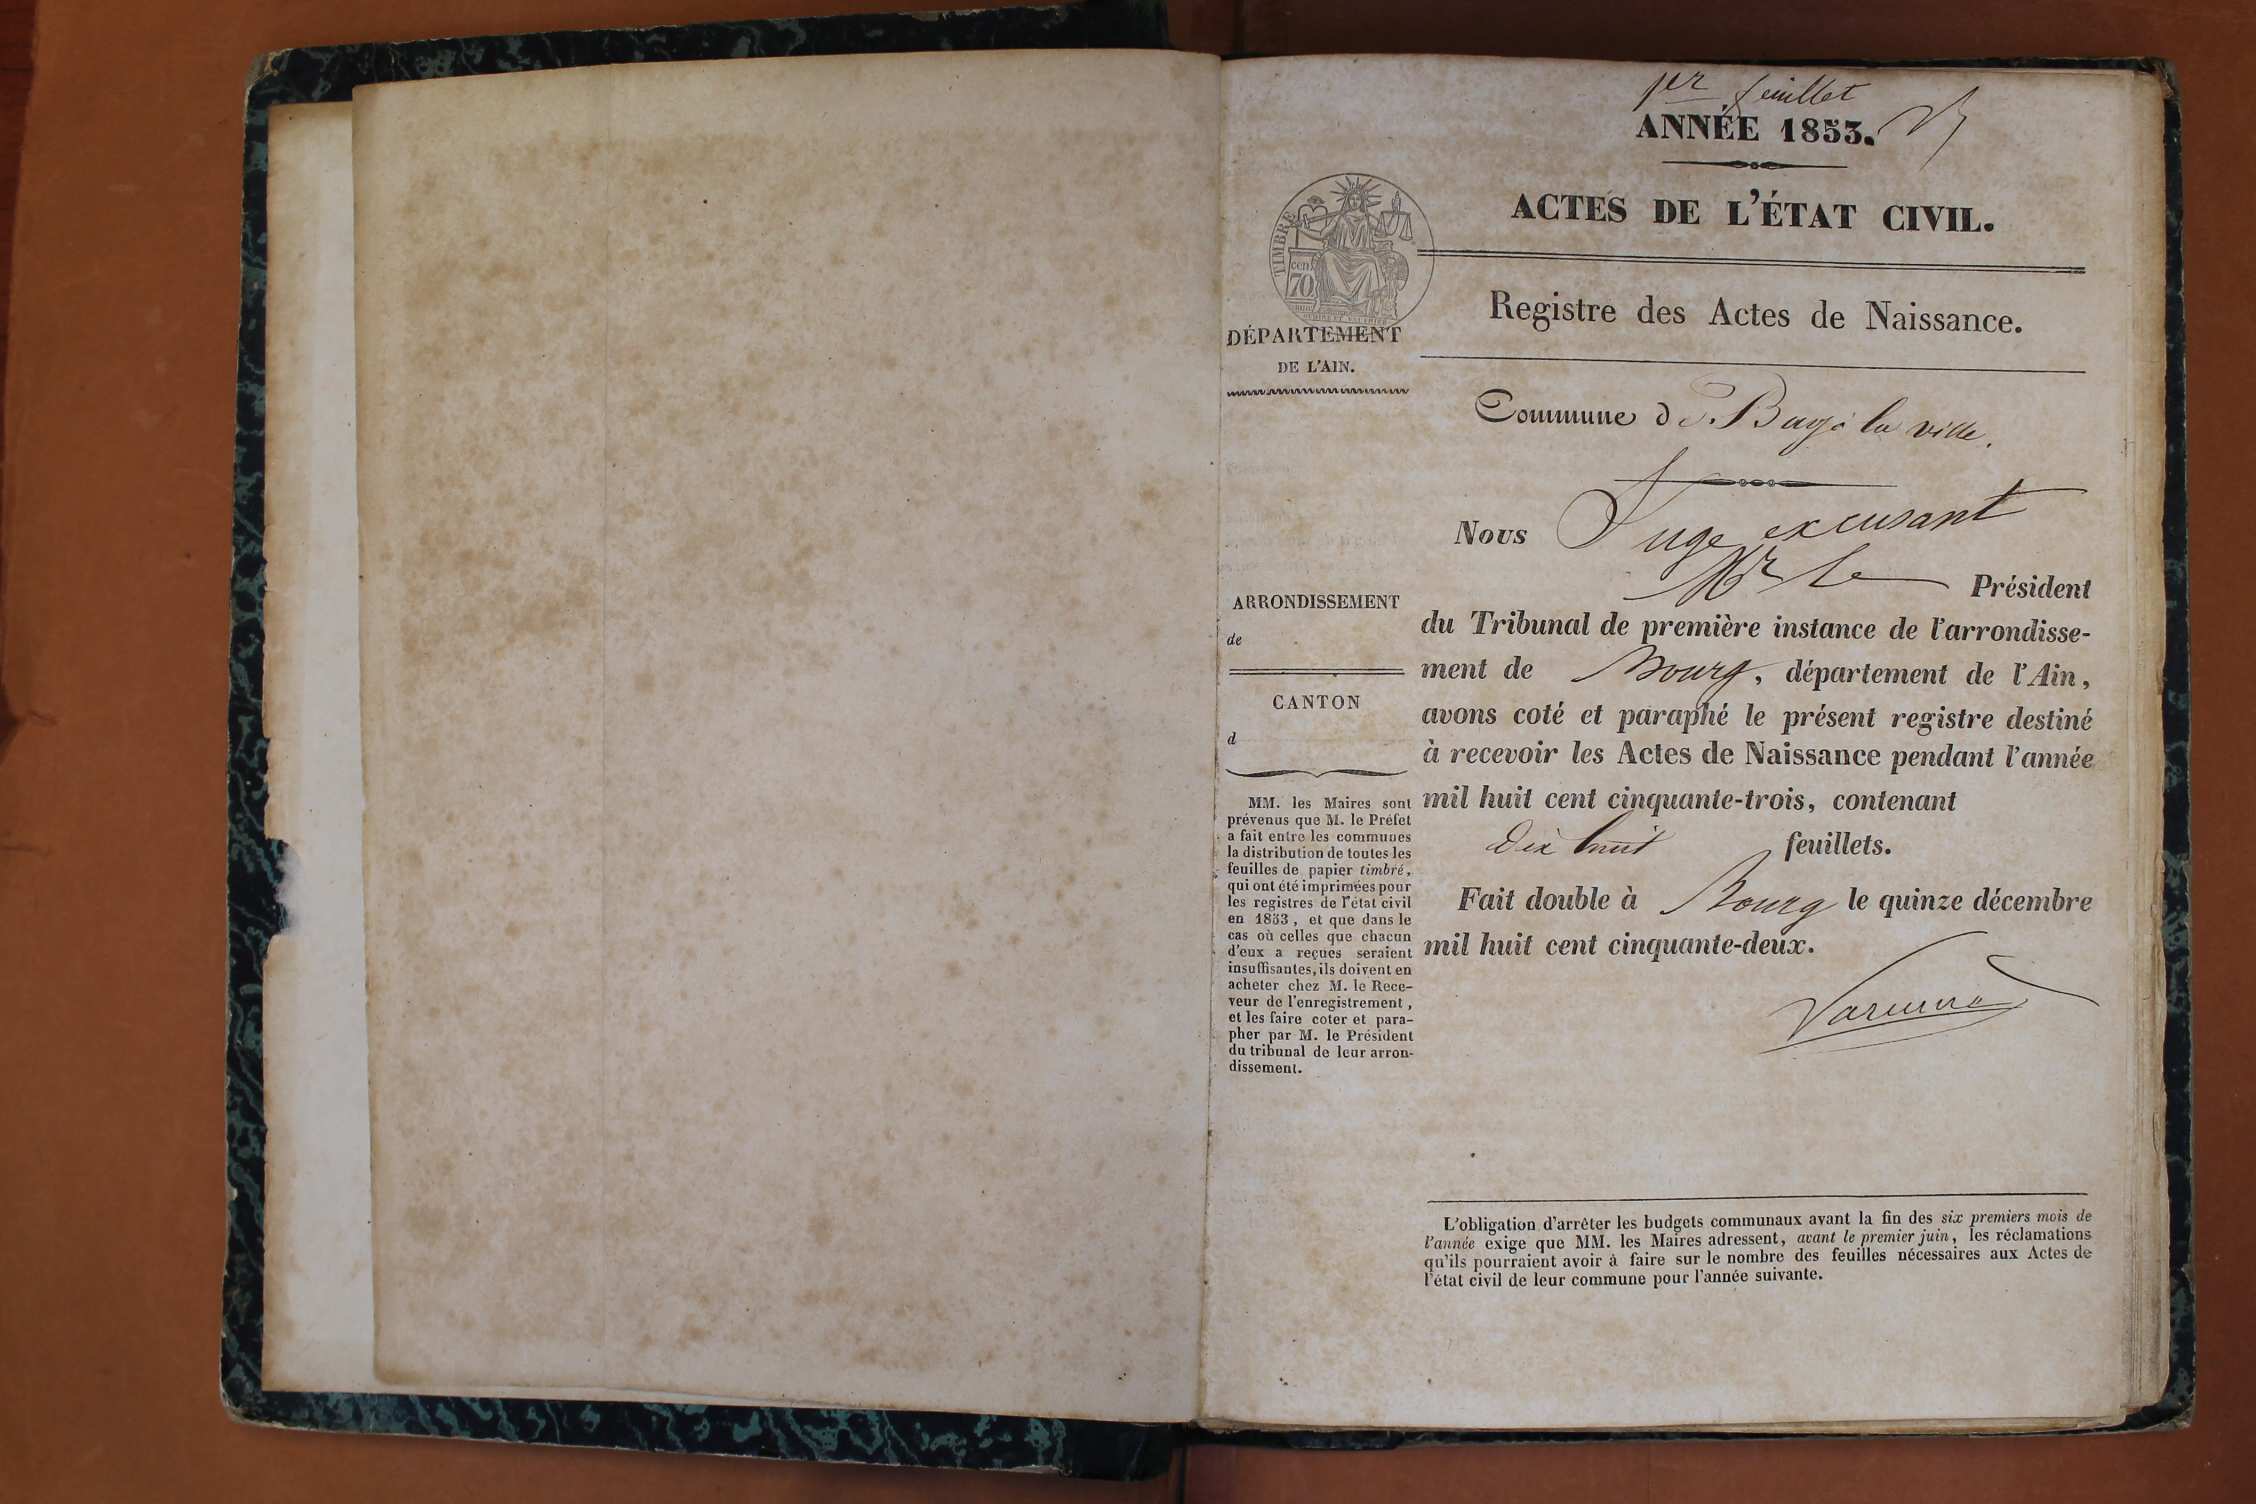 1er feuillet
ANNÉE 1853.
ACTES DE L'ÉTAT CIVIL.
TIMBRE
cen.
70
DÉPARTEMENT
DE L'AIN.
Registre des Actes de Naissance.
Commune de Bagé la ville.
Nous Juge excusant
Mr le Président
du Tribunal de première instance de l'arrondisse-
ment de Bourg, département de l'Ain,
avons coté et paraphé le présent registre destiné
à recevoir les Actes de Naissance pendant l'année
mil huit cent cinquante-trois, contenant
dix huit feuillets.
Fait double à Bourg le quinze décembre
mil huit cent cinquante-deux.
ARRONDISSEMENT
de
CANTON
d
MM. les Maires sont
prévenus que M. le Préfet
a fait entre les communes
la distribution de toutes les
feuilles de papier timbré,
qui ont été imprimées pour
les registres de l'état civil
en 1853, et que dans le
cas où celles que chacun
d'eux a reçues seraient
insuffisantes, ils doivent en
acheter chez M. le Rece-
veur de l'enregistrement,
et les faire coter et para-
pher par M. le Président
du tribunal de leur arron-
dissement.
L'obligation d'arrêter les budgets communaux avant la fin des six premiers mois de
l'année exige que MM. les Maires adressent, avant le premier juin, les réclamations
qu'ils pourraient avoir à faire sur le nombre des feuilles nécessaires aux Actes de
l'état civil de leur commune pour l'année suivante.